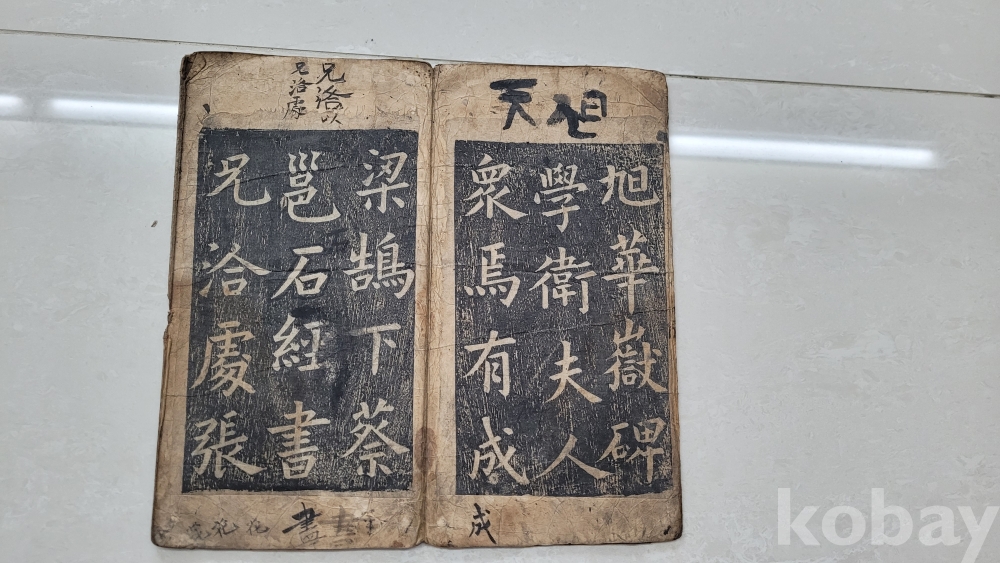 兄洛
兄洛處
梁鵠下蔡
邕石經書
兄洽處張
書
天旭
旭華嶽碑
學衛夫人
衆焉有成
成
kobay